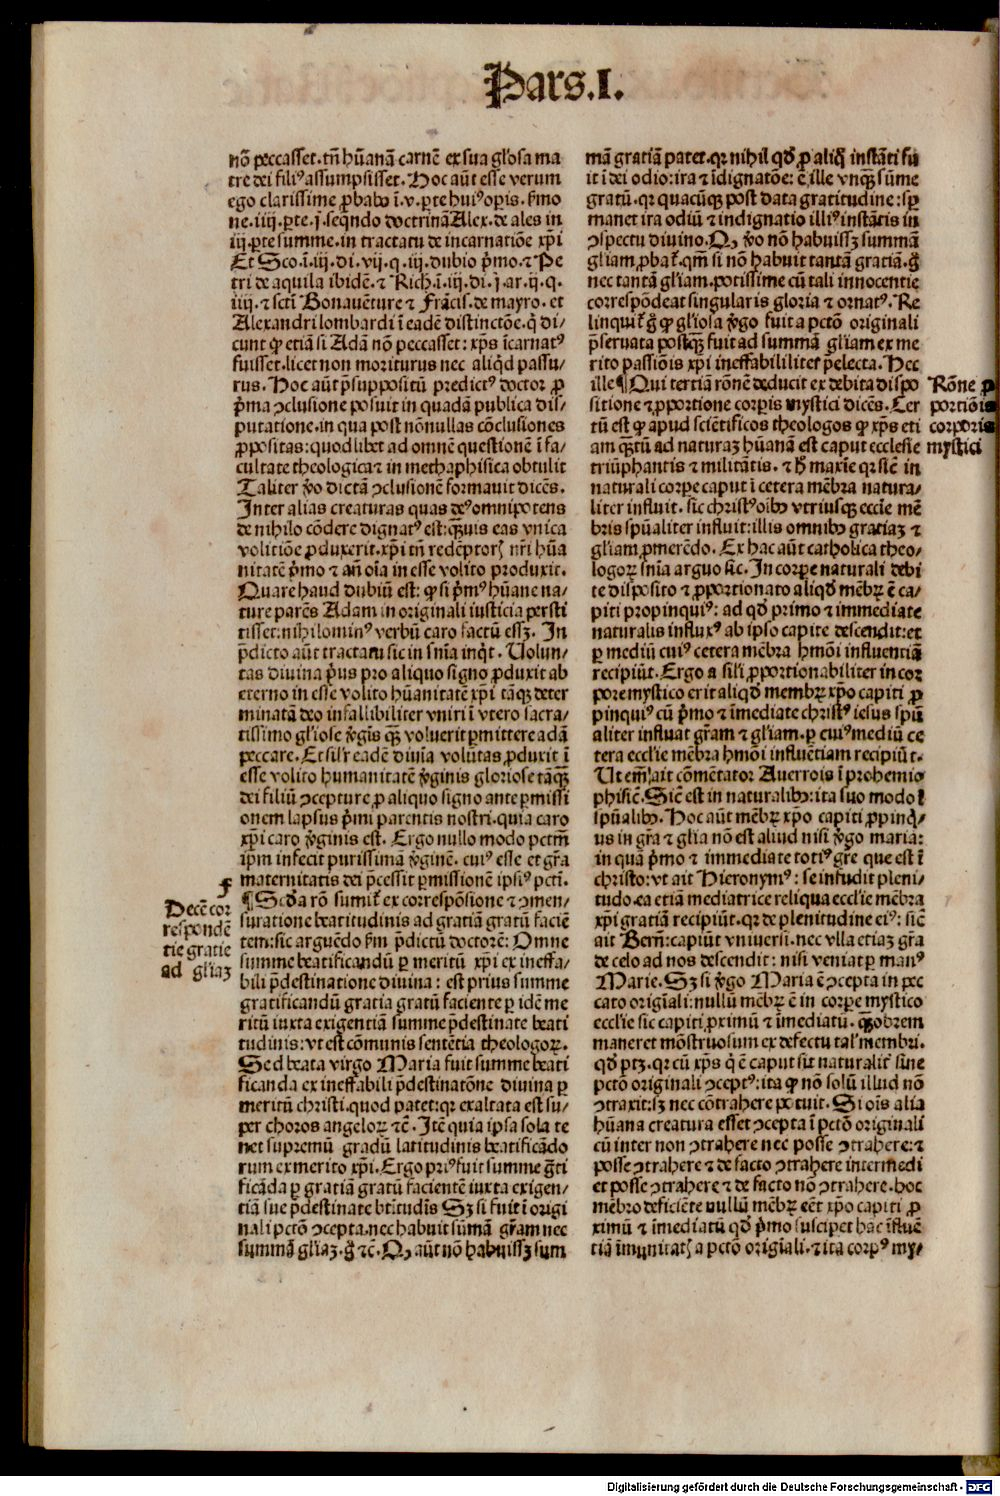 Pars.I.
nõ peccasset.tñ hũanã carnẽ ex sua gliosa ma
tre dei filiꝰ assumpsisset. Hoc aũt esse verum
ego clarissime ꝓbabo ĩ.v.ꝑte huiꝰ oꝑis. ẜmo
ne.iiij.ꝑte.j.seq̃ndo doctrinã Alex.de ales in
iij.ꝑte summe.in tractatu de incarnatiõe xp̃i
Et Sco.ĩ.iij.di.vij.q.iij.dubio p̃mo.⁊ Pe
tri de aquila ibidẽ.⁊ Rich.ĩ.iij.di.j.ar.ij.q.
iiij.⁊ sctĩ Bonauẽture ⁊ Frãcis.de mayro. et
Alexandri lombardi ĩ eadẽ distinctõe.q̃ di/
cunt ꝙ etiã si Adã nõ peccasset: xp̃s ĩcarnatꝰ
fuisset.licet non moriturus nec aliq̃d passu/
rus. Hoc aũt p̃suppositũ predictꝰ doctor ꝓ
p̃ma ꝯclusione posuit in quadã publica dis/
putatione.in qua post nõnullas cõclusiones
ꝓpositas: quodlibet ad omnẽ questionẽ ĩ fa/
cultate theologica ⁊ in methaphisica obtulit
Taliter ṽo dictã ꝯclusionẽ formauit dicẽs.
Inter alias creaturas quas deꝰ omnipotens
de nihilo cõdere dignatꝰ est: q̃uis eas vnica
volitiõe ꝓduxerit.xp̃i tñ redẽptorꝭ nr̃i hũa
nitatẽ p̃mo ⁊ añ oĩa in esse volito produxit.
Quare haud dubiũ est: ꝙ si p̃mꝰ hũane na/
ture parẽs Adam in originali iusticia persti
tisset: nihilominꝰ verbũ caro factũ essꝫ. In
p̃dicto aũt tractatu sic in sñia inq̃t. Volun/
tas diuina p̃us pro aliquo signo ꝓduxit ab
eterno in esse volito hũanitatẽ xp̃i tãqꝫ deter
minatã deo infallibiliter vniri ĩ vtero sacra/
tissimo gliose ṽgĩs q̃ꝫ voluerit ꝑmittere adã
peccare. Et silr eadẽ diuĩa volũtas ꝓduxit ĩ
esse volito humanitatẽ ṽginis gloriose tãq̃ꝫ
dei filiũ ꝯcepture ꝓ aliquo signo ante ꝑmissi
onem lapsus p̃mi parentis nostri.quia caro
xp̃i caro ṽginis est. Ergo nullo modo pctm̃
ip̃m infecit purissimã ṽginẽ. cuiꝰ esse et gr̃a
maternitatis dei p̃cessit ꝑmissionẽ ipsiꝰ pctĩ.
f
¶ Scd̃a rõ sumit̃ ex correspõsione ⁊ ꝯmen/
suratione beatitudinis ad gratiã gratũ faciẽ
tem: sic arguẽdo ẜm p̃dictũ doctorẽ: Omne
summe beatificandũ ꝑ meritũ xp̃i ex ineffa/
bili p̃destinatione diuina: est prius summe
gratificandũ gratia gratũ faciente ꝑ idẽ me
ritũ iuxta exigentiã summe p̃destinate beati
tudinis: vt est cõmunis sentẽtia theologoꝝ.
Sed beata virgo Maria fuit summe beati
ficanda ex ineffabili p̃destinatõne diuina ꝑ
meritũ christi.quod patet: qꝛ exaltata est su/
per choros angeloꝝ ⁊c̃. Itẽ quia ipsa sola te
net supremũ gradũ latitudinis beatificãdo
rum ex merito xp̃i. Ergo priꝰ fuit summe g̃ti
ficãda ꝑ gratiã gratũ facientẽ iuxta exigen/
tiã sue p̃destinate btĩtudĩs Sꝫ si fuit ĩ origi
nali pctõ ꝯcepta.nec habuit sũmã gr̃am nec
summã gliaꝫ. g̃ ⁊c̃. Qꝫ aũt nõ habuissꝫ sum
Decẽ cor
respondẽ
tie gratie
ad gliaꝫ
mã gratiã patet.qꝛ nihil qd̃ ꝓ aliq̃ instãti fu
it ĩ dei odio: ira ⁊ ĩdignatõe: ẽ ille vnqꝫ sũme
gratũ.qꝛ quacũqꝫ post data gratitudine: sꝑ
manet ira odiũ ⁊ indignatio illiꝰ instãtis in
ꝯspectu diuino. Qꝫ ṽo nõ habuissꝫ summã
gliam, ꝓbat̃.qm̃ si nõ habuit tantã gratiã. g̃
nec tantã gliam.potissime cũ tali innocentie
correspõdeat singularis gloria ⁊ ornatꝰ. Re
linquit̃ g̃ ꝙ gliosa ṽgo fuit a pctõ originali
p̃seruata postq̃ꝫ fuit ad summã gliam ex me
rito passiõnis xp̃i ineffabililiter p̃electa. Hec
ille ¶ Qui tertiã rõnẽ deducit ex debita dispo
sitione ⁊ ꝓportione corꝑis mystici dicẽs. Cer
tũ est ꝙ apud sciẽtificos theologos ꝙ xp̃s eti
am q̃ꝫtũ ad naturaꝫ hũanã est caput ecclesie
triũphantis ⁊ militãtis. ⁊ h̃ maxĩe qꝛ sicẽ in
naturali corꝑe caput ĩ cetera mẽbra natura/
liter influit. sic christꝰ oĩbꝰ vtriusqꝫ ecclie mẽ
bris spũaliter influit: illis omnibꝰ gratiaꝫ ⁊
gliam ꝓmerẽdo. Ex hac aũt catholica theo/
logoꝝ sñia arguo sic. In corꝑe naturali debi
te disposito ⁊ ꝓportionato aliqd̃ mẽbꝝ ẽ ca/
piti propinquiꝰ: ad qd̃ primo ⁊ immediate
naturalis influxꝰ ab ipso capite descendit: et
ꝑ mediũ cuiꝰ cetera mẽbra hmõi influentiã
recipiũt. Ergo a sili ꝓportionabiliter in cor
pore mystico erit aliqd̃ membꝝ xp̃o capiti ꝓ
pinquiꝰ cũ p̃mo ⁊ ĩmediate christꝰ iesus spũ
aliter influat gr̃am ⁊ gliam.ꝑ cuiꝰ mediũ ce
tera ecclie mẽbra hmõi influẽtiam recipiũt.
Ut em̃ ait cõmẽtator Auerrois ĩ prohemio
phisicẽ. Sicẽ est in naturalibꝰ: ita suo modo ĩ
spũalibꝰ. Hoc aũt mẽbꝝ xp̃o capiti ꝓpinq̃/
us in gr̃a ⁊ glia nõ est aliud nisi ṽgo maria:
in quã p̃mo ⁊ immediate totiꝰ gr̃e que est ĩ
christo: vt ait Hieronymꝰ: se infudit pleni/
tudo.ea etiã mediatrice reliqua ecclie mẽbra
xp̃i gratiã recipiũt.qꝛ de plenitudine eiꝰ: sicẽ
ait Bern̄: capiũt vniuersi.nec vlla etiaꝫ gr̃a
de celo ad nos descendit: nisi veniat ꝑ manꝰ
Marie. Sꝫ si ṽgo Maria ẽ ꝯcepta in pec
cato origĩali: nullũ mẽbꝝ ẽ in corꝑe mystico
ecclie sic capiti ꝓximũ ⁊ ĩmediatũ. q̃ꝫobrem
maneret mõstruosum ex defectu tal' membri.
qd̃ ptꝫ.qꝛ cũ xp̃s q̃ ẽ caput sit naturalit̃ sĩne
pctõ originali ꝯceptꝰ: ita ꝙ nõ solũ illud nõ
ꝯtraxit: sꝫ nec cõtrahere potuit. Si oĩs alia
hũana creatura esset ꝯcepta ĩ pctõ originali
cũ inter non ꝯtrahere nec posse ꝯtrahere: ⁊
posse ꝯtrahere ⁊ de facto ꝯtrahere intermedi
et posse ꝯtrahere ⁊ de facto nõ ꝯtrahere. hoc
mẽbro deficiẽte nullũ mẽbꝝ eẽt xp̃o capiti ꝓ
ximũ ⁊ ĩmediatũ qd̃ p̃mo susciperet hãc ĩfluẽ
tiã ĩmunitatꝭ a pctõ origĩali.⁊ ita corpꝰ my/
Rõne ꝓ
portiõis
corporis
mystici
Digitalisierung gefördert durch die Deutsche Forschungsgemeinschaft - DFG